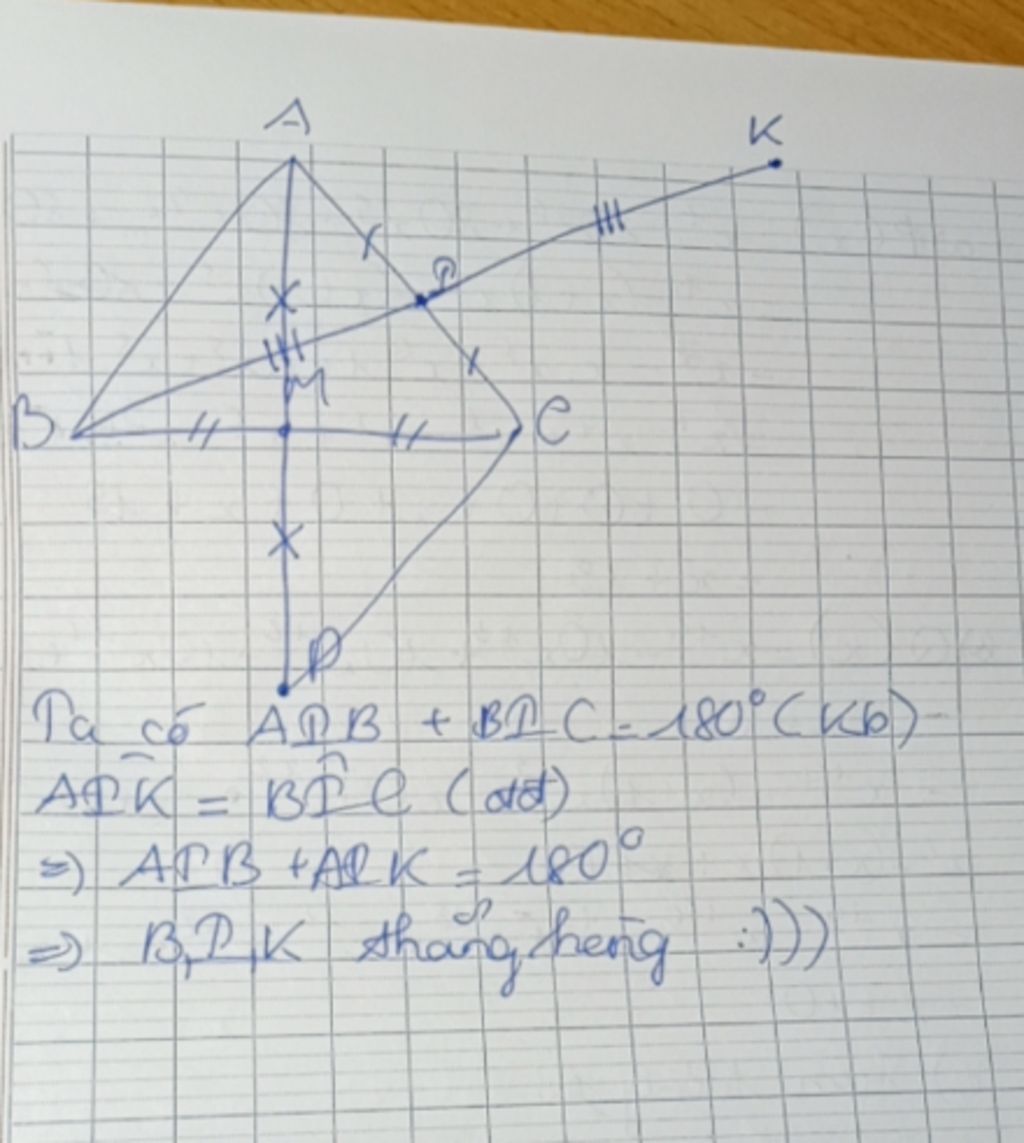 A
K
I
M
B
C
D
Ta có AIB + BIC = 180° (Kb)
AIK = BIC (đđ)
=> AIB + AIK = 180°
=> B, I, K thẳng hàng :)))